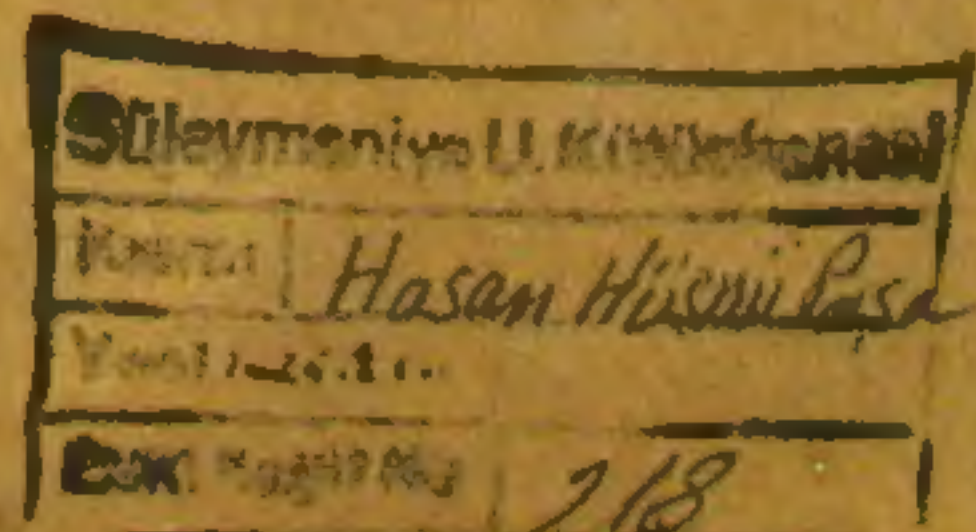 Süleymaniye U. Kütüphanesi
Kısmı Hasan Hüsnü Paşa
Yeni Kayıt No.
Eski Kayıt No. 218